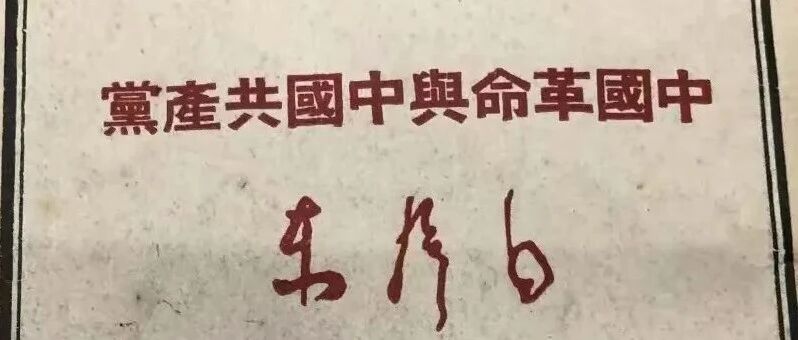 中國革命與中國共產黨
毛澤東